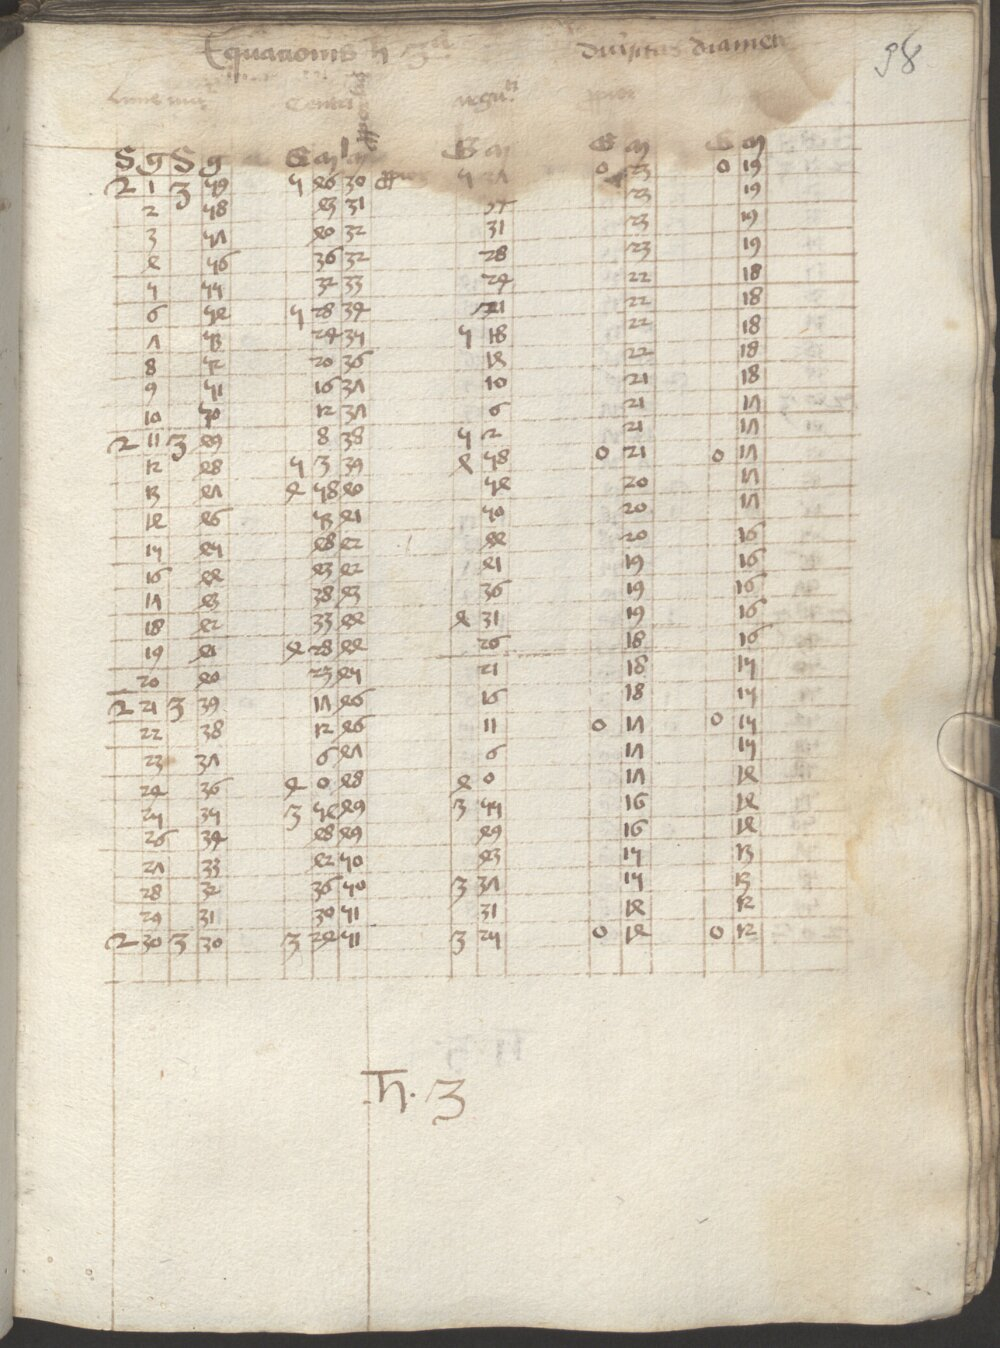 98
Equationis ♄ 3a diversitas diametri
Linee Centri
S g S g G m m G m G m G m
2 1 3 59 5 46 30 5 37 0 23 0 19
2 58 43 31 34 23 19
3 57 40 32 31 23 19
4 56 36 32 28 23 19
5 55 32 33 24 22 18
6 54 5 28 34 21 22 18
7 53 24 35 5 18 22 18
8 52 20 36 14 22 18
9 51 16 37 10 21 18
10 50 12 37 6 21 17
2 11 3 49 8 38 5 2 21 17
12 48 5 3 39 4 58 0 21 0 17
13 47 4 58 40 54 20 17
14 46 53 41 50 20 17
15 45 48 42 44 20 16
16 44 43 42 41 19 16
17 43 38 43 36 19 16
18 42 33 44 4 31 19 16
19 41 4 28 44 26 18 16
20 40 23 45 21 18 15
2 21 3 39 17 46 16 18 15
22 38 12 46 11 0 17 0 15
23 37 6 47 6 17 15
24 36 4 0 48 4 0 17 14
25 35 3 54 49 3 55 16 14
26 34 48 49 49 16 14
27 33 42 50 43 15 13
28 32 36 50 3 37 15 13
29 31 30 51 31 14 12
2 30 3 30 3 24 51 3 25 0 14 0 12
♄. 3